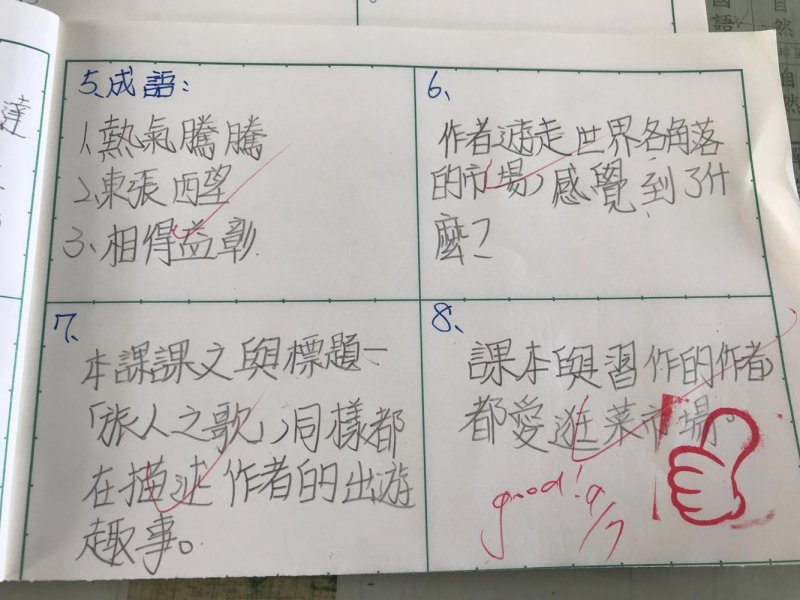 5、成語:
1、熱氣騰騰
2、東張西望
3、相得益彰
6、
作者遊走世界各角落
的市場,感覺到了什
麼?
7、
本課課文與標題一
「旅人之歌」,同樣都
在描述作者的出遊
趣事。
8、
課本與習作的作者,
都愛逛菜市場。
good! 9/7
達
國語
自然
自然